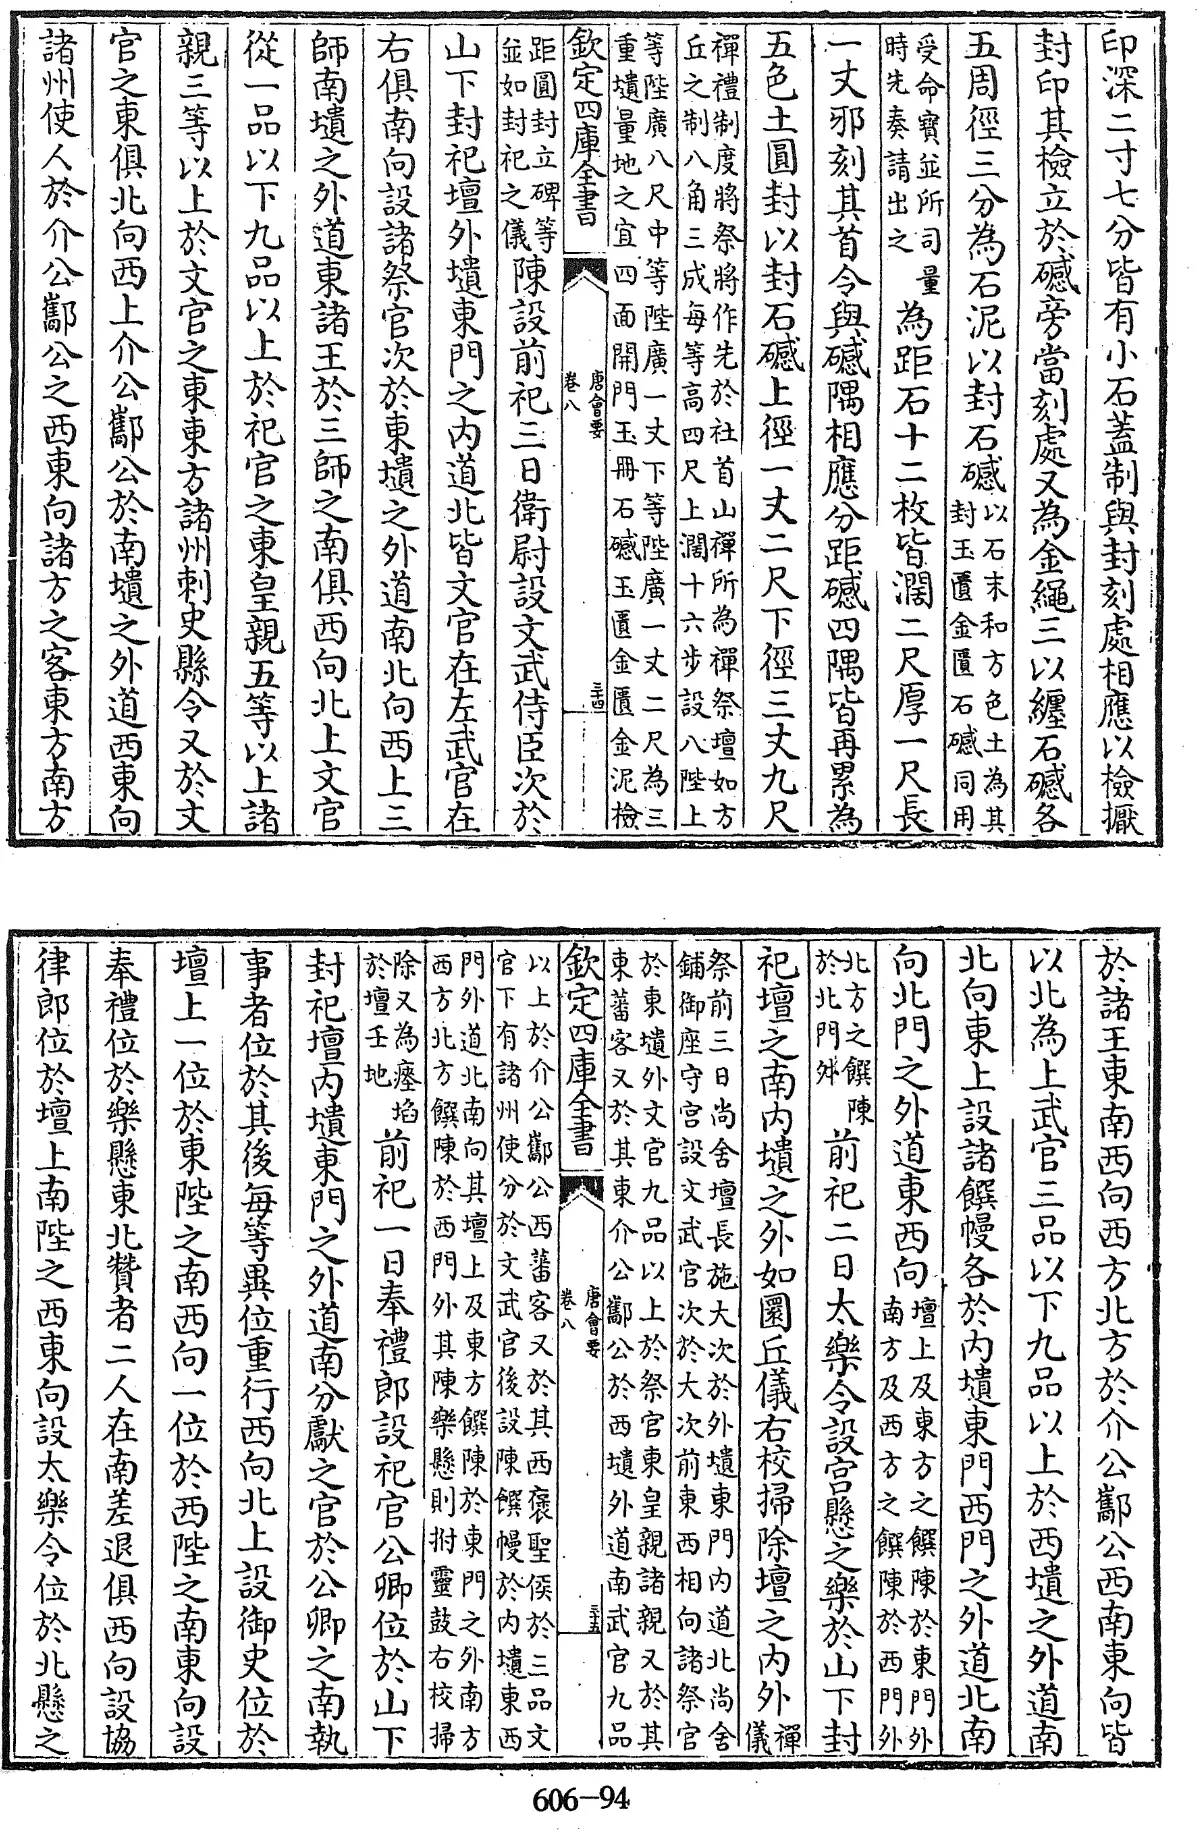 印深二寸七分皆有小石蓋制與封刻處相應以檢擫
封印其檢立於䃭旁當刻處又為金繩三以纏石䃭各
五周徑三分為石泥以封石䃭以石末和方色土為其
封玉匱金匱石䃭同用
受命寶並所司量
時先奏請出之
為距石十二枚皆濶二尺厚一尺長
一丈邪刻其首令與䃭隅相應分距䃭四隅皆再累為
五色土圓封以封石䃭上徑一丈二尺下徑三丈九尺
禪禮制度將祭將作先於社首山禪所為禪祭壇如方
丘之制八角三成每等高四尺上濶十六步設八陛上
等陛廣八尺中等陛廣一丈下等陛廣一丈二尺為三
重壝量地之宜四面開門玉冊石䃭玉匱金匱金泥檢
欽定四庫全書
唐會要
卷八
三十四
距圓封立碑等
並如封祀之儀
陳設前祀三日衛尉設文武侍臣次於
山下封祀壇外壝東門之内道北皆文官在左武官在
右俱南向設諸祭官次於東壝之外道南北向西上三
師南壝之外道東諸王於三師之南俱西向北上文官
從一品以下九品以上於祀官之東皇親五等以上諸
親三等以上於文官之東東方諸州刺史縣令又於文
官之東俱北向西上介公酅公於南壝之外道西東向
諸州使人於介公酅公之西東向諸方之客東方南方
於諸王東南西向西方北方於介公酅公西南東向皆
以北為上武官三品以下九品以上於西壝之外道南
北向東上設諸饌幔各於内壝東門西門之外道北南
向北門之外道東西向壇上及東方之饌陳於東門外
南方及西方之饌陳於西門外
北方之饌陳
於北門外
前祀二日太樂令設宫懸之樂於山下封
祀壇之南内壝之外如圜丘儀右校掃除壇之内外禪
儀
祭前三日尚舍壇長施大次於外壝東門内道北尚舍
鋪御座守宫設文武官次於大次前東西相向諸祭官
於東壝外文官九品以上於祭官東皇親諸親又於其
東蕃客又於其東介公酅公於西壝外道南武官九品
欽定四庫全書
唐會要
卷八
三十五
以上於介公酅公西蕃客又於其西褒聖侯於三品文
官下有諸州使分於文武官後設陳饌幔於内壝東西
門外道北南向其壇上及東方饌陳於東門之外南方
西方北方饌陳於西門外其陳樂懸則拊靈鼓右校掃
除又為瘞埳
於壇壬地
前祀一日奉禮郎設祀官公卿位於山下
封祀壇内壝東門之外道南分獻之官於公卿之南執
事者位於其後每等異位重行西向北上設御史位於
壇上一位於東陛之南西向一位於西陛之南東向設
奉禮位於樂懸東北贊者二人在南差退俱西向設協
律郎位於壇上南陛之西東向設太樂令位於北懸之
606-94